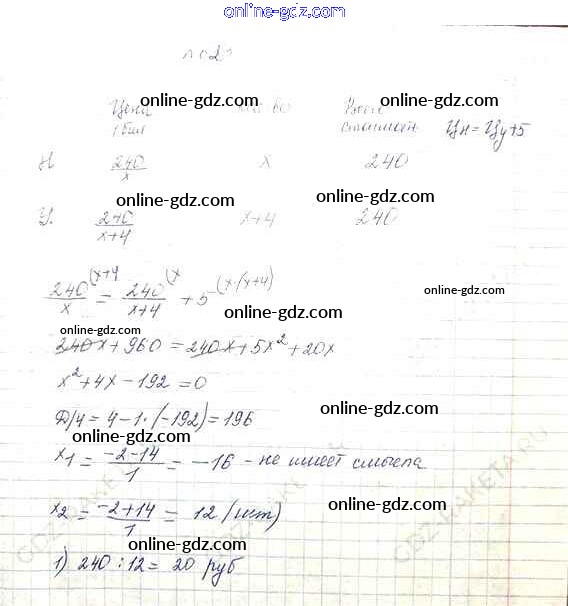 online-gdz.com
Цена
1 бил
Всего
Цн = Цу + 5
Н 240/x x 240
У. 240/(x+4) x+4 240
240/x (x+4 = 240/(x+4) (x + 5 (x·(x+4)
240x + 960 = 240x + 5x² + 20x
x² + 4x - 192 = 0
Д/4 = 4 - 1·(-192) = 196
x₁ = (-2-14)/1 = -16 - не имеет смысла
x₂ = (-2+14)/1 = 12 (шт)
1) 240 : 12 = 20 руб
online-gdz.com
online-gdz.com
online-gdz.com
online-gdz.com
online-gdz.com
online-gdz.com
online-gdz.com
online-gdz.com
online-gdz.com
online-gdz.com
online-gdz.com
GDZ-RAKETA.RU